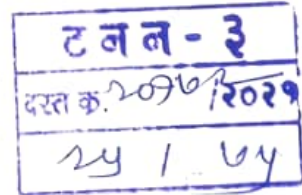 ट न न - ३
दस्त क्र. २०१७/२०२१
२५ / ७५